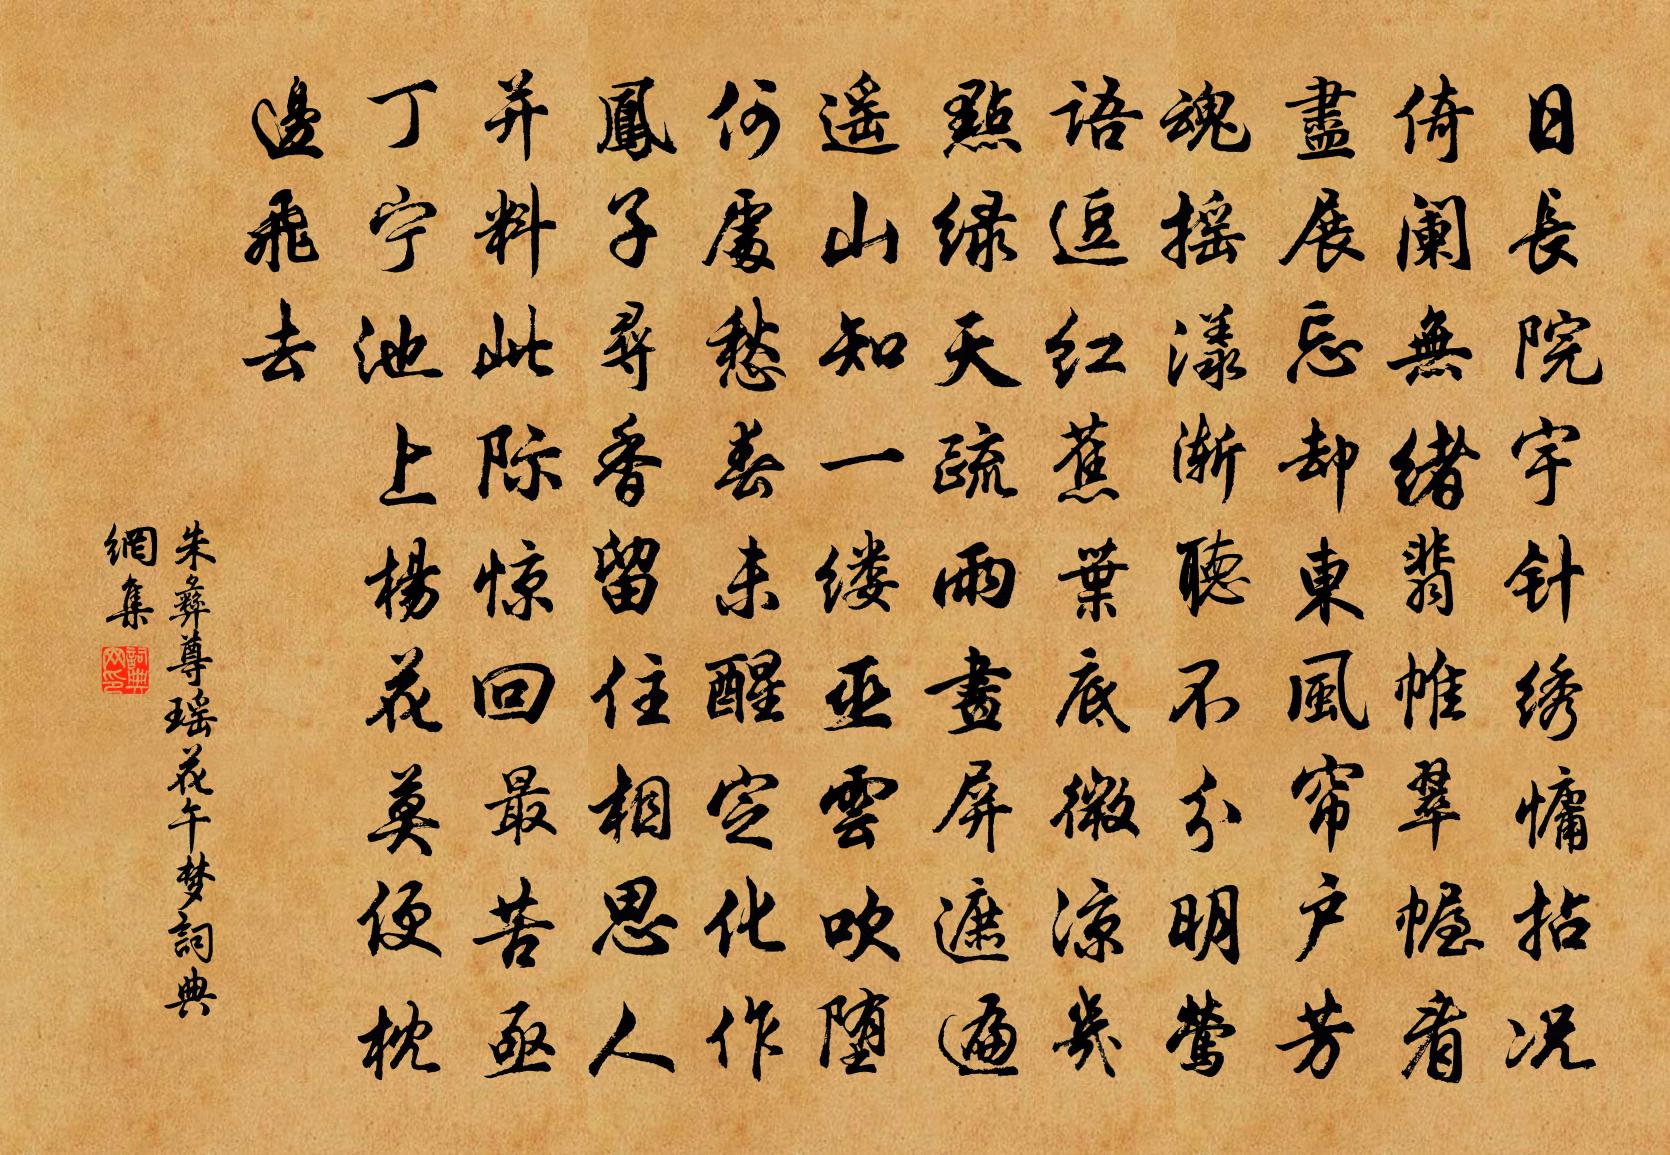 日長院宇针绣慵拈况
倚阑無緒翡帷翠幄看
盡展忘却東風帘户芳
魂摇漾渐聽不分明鶯
語逗红蕉葉底微凉幾
點绿天疏雨畫屏遮遍
遥山知一缕巫雲吹堕
何處愁春未醒定化作
鳳子尋香留住相思人
并料此际惊回最苦亟
丁宁池上楊花莫便枕
邊飛去
朱彝尊瑶花午梦詞典
網集